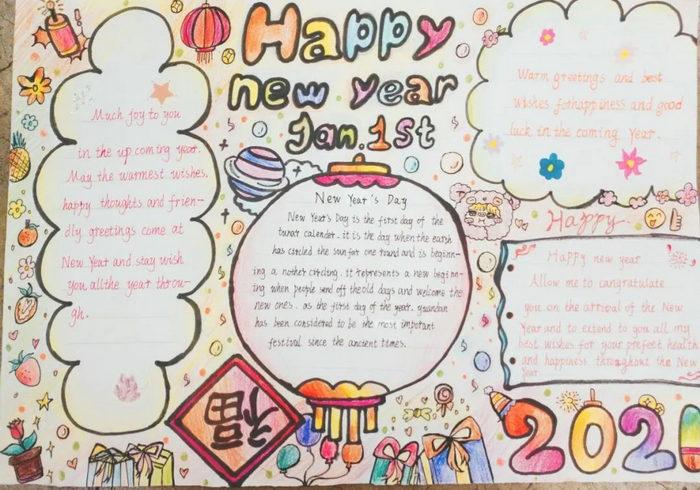 Happy
new year
Jan.1st
Much joy to you
in the up coming year.
May the warmest wishes,
happy thoughts and frien-
dly greetings come at
New Year and stay wish
you all the year throu-
gh.
Warm greetings and best
wishes for happiness and good
luck in the coming year.
New Year's Day
New Year's Day is the first day of the
lunar calender. it is the day when the earth
has circled the sun for one round and is beginn-
ing a nother circling. it represents a new begi nn-
ing when people send off the old days and welcome the
new ones. as the first day of the year, yuandan
has been considered to be the most important
festival since the ancient times.
Happy
Happy new year
Allow me to cangratulate
you on the arrival of the New
Year and to extend to you all my
best wishes for your prefect health
and happiness throughout the New
Year
福
202